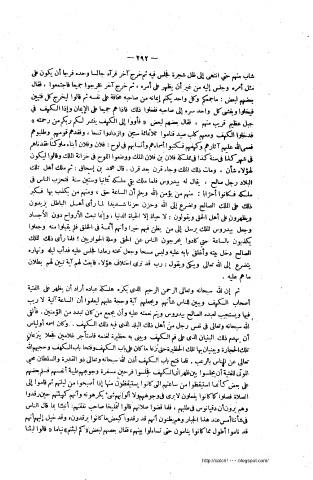 — ٢٩٢ —
شاب منهم حتى انتهى إلى ظل شجرة فجلس فيه ثم خرج آخر فرآه جالسا وحده فرجا أن يكون على
مثل أمره وجلس إليه من غير أن يظهر على أمره ، ثم خرج آخر فخرجوا جميعا فاجتمعوا ، فقال
بعضهم لبعض : ماجمعكم وكل واحد يكتم إيمانه من صاحبه مخافة على نفسه ثم قالوا ليخرج كل فتيين
فيخلوا ويفشى كل واحد سره إلى صاحبه ففعلوا ذلك فاذا هم جميعا على الإيمان وإذا الكهف فى
جبل عظيم قريب منهم ، فقال بعضهم لبعض « فأووا إلى الكهف ينشر لكم ربكم من رحمته »
فدخلوا الكهف ومعهم كلب صيد فناموا ثلاثمائة سنين وازدادوا تسعا ، وفقدهم قومهم وطلبوهم
فعمى الله عليهم آثارهم وكهفهم فكتبوا أسماءهم وأنسابهم فى لوح : فلان وفلان أبناء ملوكنا فقدناهم
فى شهر كذا فى سنة كذا فى مملكة فلان بن فلان الملك ووضعوا اللوح فى خزانة الملك وقالوا ليكون
لهؤلاء شأن ، ومات ذلك الملك وجاء قرن بعد قرن. قال محمد بن إسحاق : ثم ملك أهل تلك
البلاد رجل صالح ، يقال له بيدروس فلما ملك بقى فى ملكه ثمانيا وستين سنة فتحزب الناس فى
ملكه فكانوا أحزابا : منهم من يؤمن بالله ويعلم أن الساعة حق ، ومنهم من يكذب بها فكبر
ذلك على الملك الصالح وتضرع إلى الله وحزن حزنا شديدا لما رأى أهل الباطل يزيدون
ويظهرون على أهل الحق ويقولون : لا حياة إلا الحياة الدنيا ، وإنما تبعث الأرواح دون الأجساد
وجعل بيدروس الملك يرسل إلى من يظن فيهم خيرا وأنهم أئمة فى الحق فلم يقبلوا منه وجعلوا
يكذبون بالساعة حتى كادوا يخرجون الناس عن الحق وملة الحواريين ! فلما رأى ذلك الملك
الصالح دخل بيته وأغلق بابه عليه ولبس مسحا وجعل تحته رمادا فجلس عليه فدأب ليله ونهاره
يتضرع إلى الله تعالى ويبكى ويقول : رب قد ترى اختلاف هؤلاء فابعث لهم آية تبين لهم بطلان
ما هم عليه .
ثم إن الله سبحانه وتعالى الرحمن الرحيم الذى يكره هلكة عباده أراد أن يظهر على الفتية
أصحاب الكهف ويبين للناس شأنهم ويجعلهم آية وحجة عليهم ليعلموا أن الساعة آتية لا ريب
فيها ويستجيب لعبده الصالح بيدروس ويتم نعمته عليه وأن يجمع من كان تبدد من المؤمنين ، فألقى
الله سبحانه وتعالى فى نفس رجل من أهل ذلك البلد الذى فيه ذلك الكهف ، وكان اسمه أولياس
أن يهدم ذلك البنيان الذى على فم الكهف ويبنى به حظيرة لغنمه فاستأجر غلامين فجعلا ينزعان
تلك الحجارة ويبنيان بها تلك الحظيرة حتى نزعا ما كان على باب الكهف وفتحا باب الكهف وحجبهم الله
تعالى عن الناس بالرعب . فلما فتح باب الكهف أذن الله سبحانه وتعالى ذو القدرة والسلطان محيى
الموتى للفتية أن يجلسوا بين ظهرانى الكهف فجلسوا فرحين مسفرة وجوههم طيبة أنفسهم فسلم بعضهم
على بعض كأنما استيقظوا من ساعتهم التى كانوا يستيقظون منها إذا أصبحوا من ليلتهم ثم قاموا إلى
الصلاة فصلوا كما كانوا يفعلون لا يرى فى وجوههم ولا ألوانهم شىء يكرهونه وأنهم كهيئتهم حين رقدوا
وهم يرون أن دقيانوس فى طلبهم ، فلما قضوا صلاتهم قالوا لتمليخا صاحب نفقتهم: أنبئنا بما قال الناس
فى شأننا أمس عند هذا الجبار وهم يظنون أنهم قد رقدوا كبعض ما كانوا يرقدون ، وقد خيل إليهم أنهم
قد ناموا أطول مما كانوا ينامون حتى تساءلوا بينهم، فقال بعضهم لبعض «كم لبثتم» نياما « قالوا لبثنا